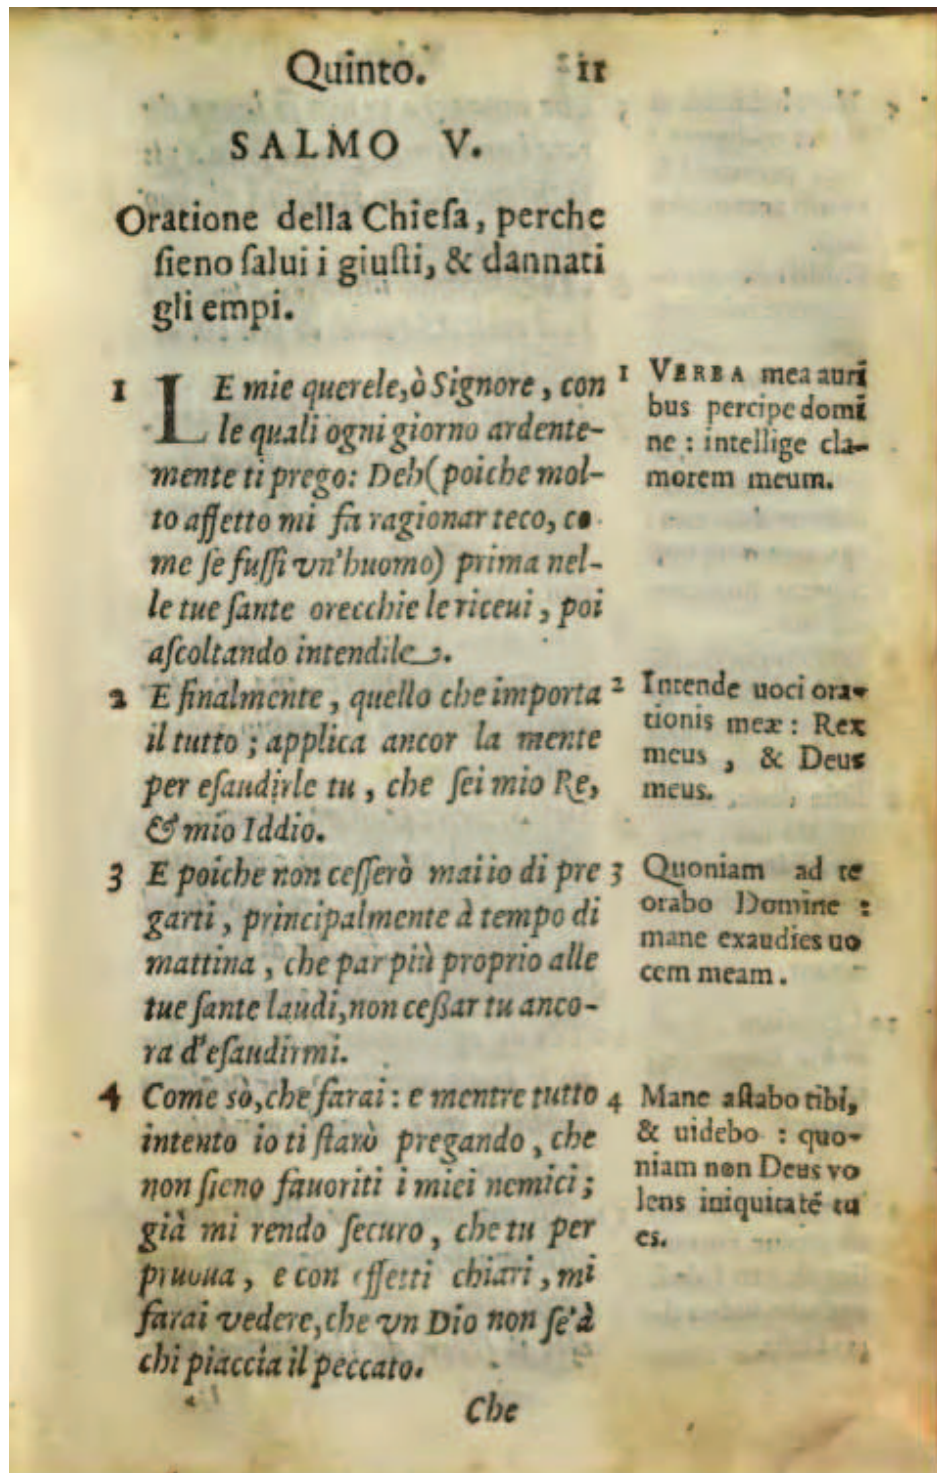 Quinto. 11
SALMO V.
Oratione della Chieſa, perche
ſieno ſalui i giuſti, & dannati
gli empi.
1 LE mie querele, ò Signore, con
le quali ogni giorno ardente-
mente ti prego: Deh (poiche mol-
to affetto mi fa ragionar teco, co
me ſe fuſſi vn'huomo) prima nel-
le tue ſante orecchie le riceui, poi
aſcoltando intendile.
2 E finalmente, quello che importa
il tutto; applica ancor la mente
per eſaudirle tu, che ſei mio Re,
& mio Iddio.
3 E poiche non ceſſerò mai io di pre
garti, principalmente à tempo di
mattina, che par più proprio alle
tue ſante laudi, non ceßar tu anco-
ra d'eſaudirmi.
4 Come sò, che farai: e mentre tutto
intento io ti ſtarò pregando, che
non ſieno fauoriti i miei nemici;
già mi rendo ſecuro, che tu per
pruoua, e con effetti chiari, mi
farai vedere, che vn Dio non ſe'à
chi piaccia il peccato.
1 VERBA mea auri
bus percipe domi
ne: intellige cla-
morem meum.
2 Intende uoci ora-
tionis meæ: Rex
meus, & Deus
meus.
3 Quoniam ad te
orabo Domine:
mane exaudies uo
cem meam.
4 Mane aſtabo tibi,
& uidebo: quo-
niam non Deus vo
lens iniquitaté tu
es.
Che